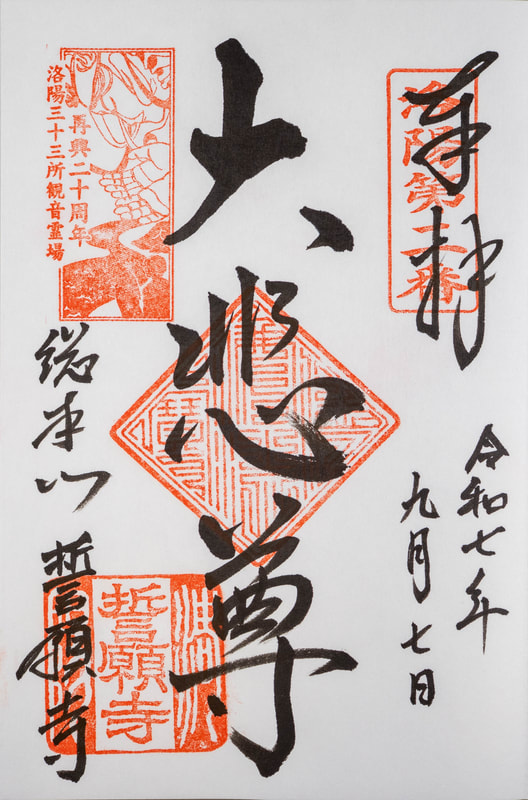 奉拝
洛陽第二番
令和七年
九月七日
大悲尊
再興二十周年
洛陽三十三所観音霊場
総本山
誓願寺
誓願寺